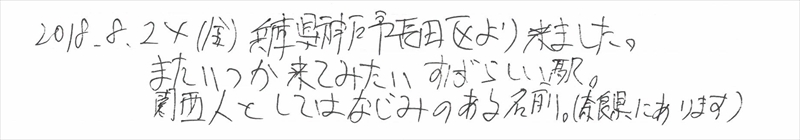 2018.8.24(金) 兵庫県神戸市長田区より来ました。
またいつか来てみたいすばらしい駅。
関西人としてはなじみのある名前。(奈良県にあります)